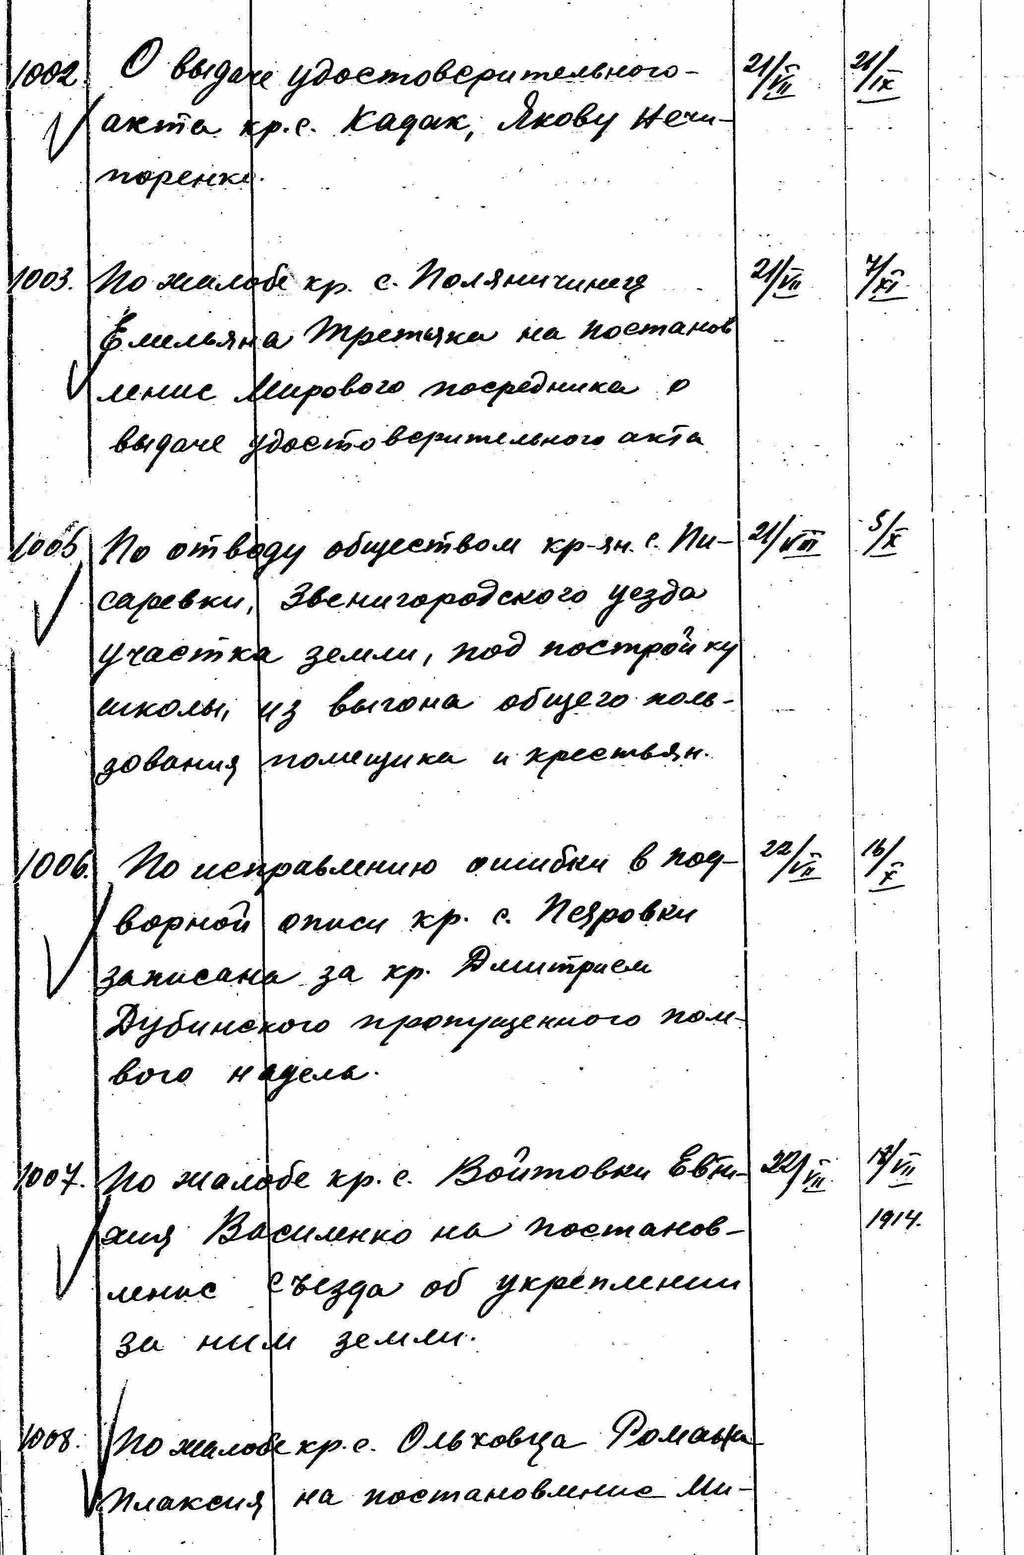 1002. О выдаче удостоверительного- 21/VII 21/IX
акта кр. с. Кадак, Якову Нечи-
поренко.
1003. По жалобе кр. с. Поляничинец 21/VII 7/XI
Емельяна Третяка на постанов
ление Мирового посредника о
выдаче удостоверительного акта
1005 По отводу обществом кр-ян. с. Пи- 21/VII 5/X
саревки, Звенигородского уезда
участка земли, под постройку
школы, из выгона общего поль-
зования помещика и крестьян.
1006. По исправлению ошибки в под- 22/VII 16/X
ворной описи кр. с. Петровки
записана за кр. Дмитрием
Дубинского пропущенного поле-
вого надела.
1007. По жалобе кр. с. Войтовки Евти- 22/VII /VII
хия Василенко на постанов- 1914.
ление съезда об укреплении
за ним земли.
1008. По жалобе кр. с. Ольховца Романа
Плаксия на постановление Ми-